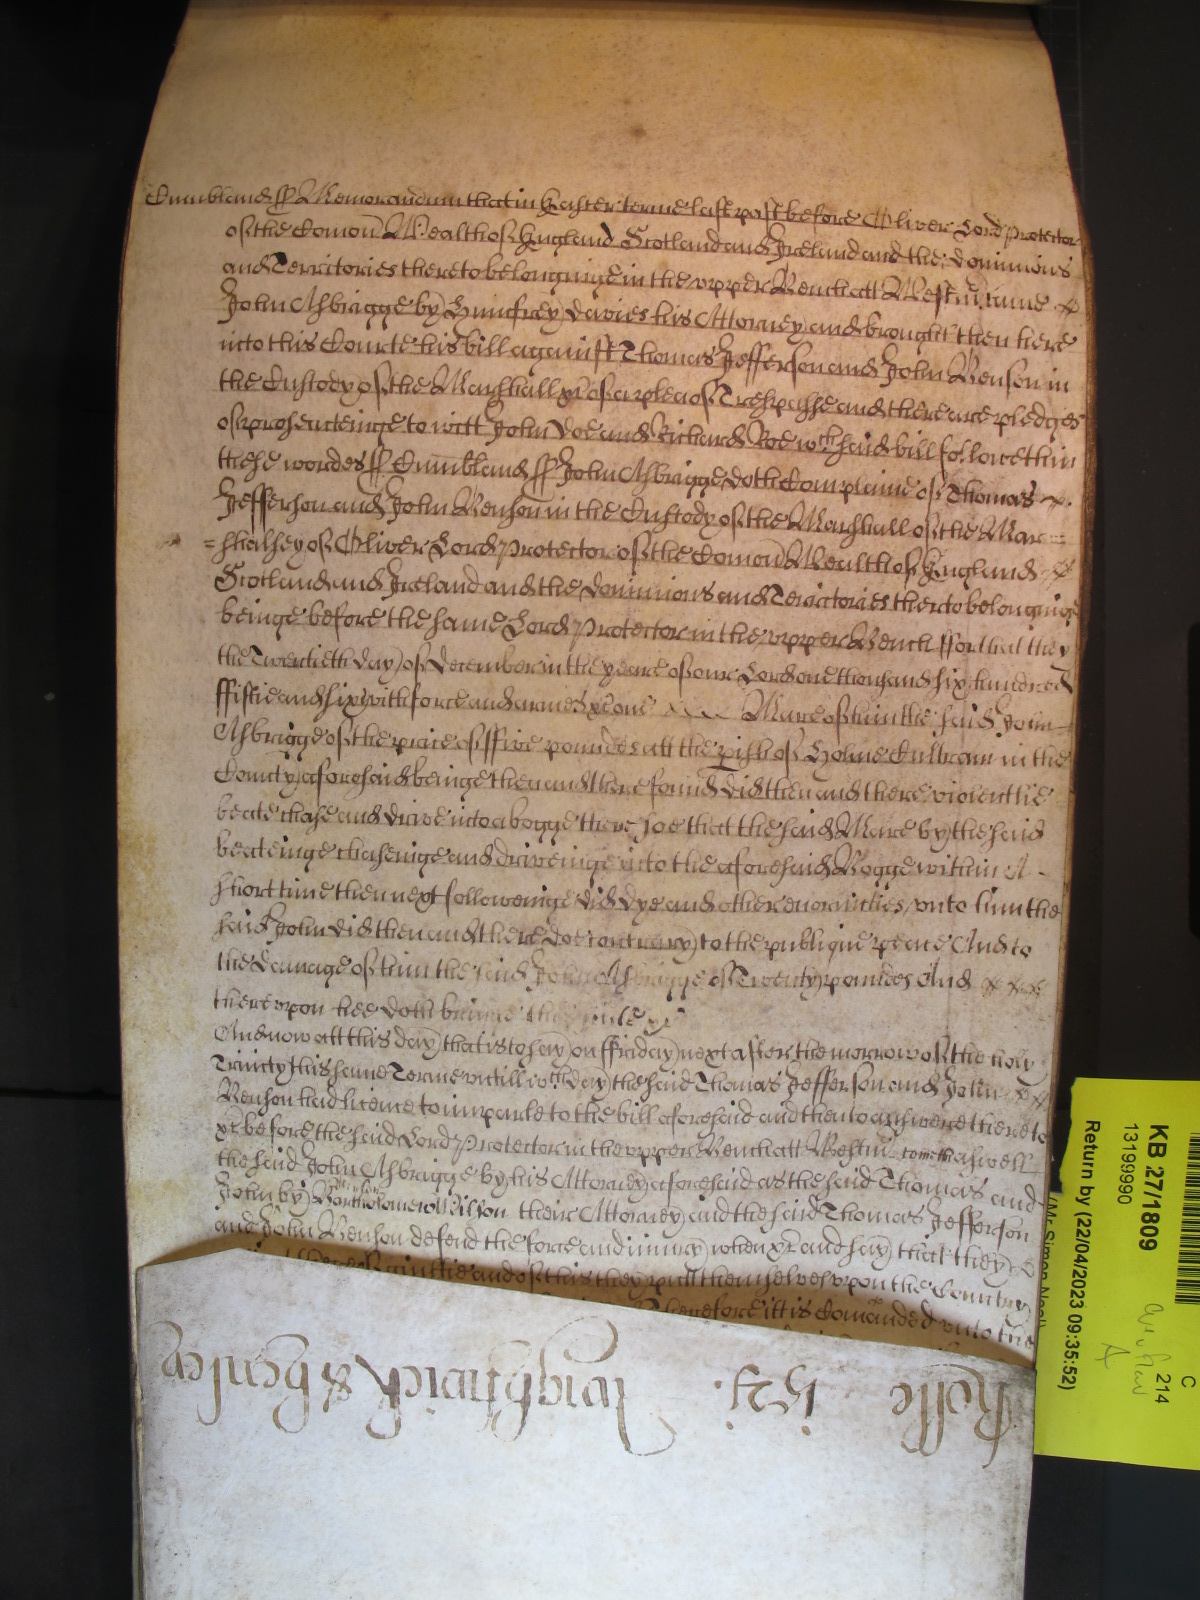 Cumbland ss Memorandum that in Easter terme last past before Oliver Lord Protector
of the Comon Wealth of England Scotland and Ireland and the dominions
and Territories thereto belonginge in the vpper Bench att Westm came
John Asbrigge by Humfrey Davies his Attorney and brought then here
into this Courte his bill against Thomas Jefferson and John Benson in
the Custody of the Marshall &c of a plea of Trespasse and there are pledges
of prosecuteinge to witt John Doe and Richard Roe wch said bill followeth in
these wordes ss Cumbland ss John Asbrigge doth Complaine of Thomas
Jefferson and John Benson in the Custody of the Marshall of the Mar=
=shalsey of Oliver Lord Protector of the Comon Wealth of England
Scotland and Ireland and the dominions and Territories therto belonginge
beinge before the same Lord Protector in the vpper Bench ffor that they
the Twentieth day of December in the yeare of our Lord one thousand six hundred
ffiftie and six with force and armes &c one Mare of him the said John
Asbrigge of the price of ffive poundes att the pish of Holme Cultram in the
County aforesaid beinge then and there found did then and there violentlie
beate chase and drive into a bogge there soe that the said Mare by the said
beateinge chaseinge and driveinge into the aforesaid Bogge within A
short time then next followeinge did dye and other enormities vnto him the
said John did then and there doe contrary to the publique peace And to
the damage of him the said John Asbrigge of Twenty poundes And
therevpon hee doth bringe this suite &c
And now att this day that is to say on ffriday next after the morrow of the holy
Trinity this same Terme vntill wch day the said Thomas Jefferson and John
Benson had licence to imparle to the bill aforesaid and then to answere thereto
&c before the said Lord Protector in the vpper Bench att Westm cometh aswell
the said John Asbrigge by his Attorney aforesaid as the said Thomas and
John by Bartholomew Wilson their Attorney and the said Thomas Jefferson
and John Benson defend the force and iniury when &c and say that they
are not thereof guiltie and of this they putt themselves vpon the Country
Therefore itt is Comanded vnto the
Rolle
Wightwick &
KB 27/1809
13199990
C
214
A
Return by (22/04/2023 09:35:52)